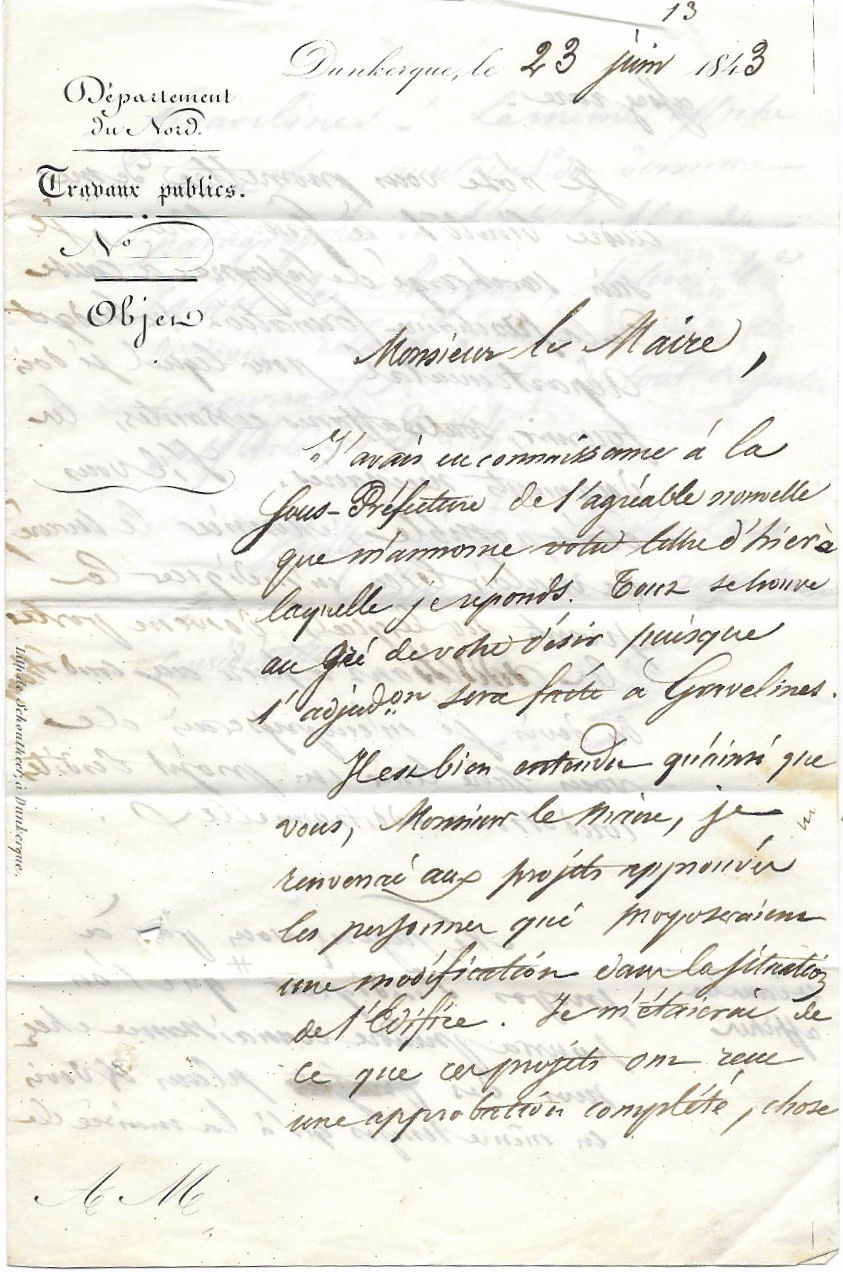 13
Dunkerque, le 23 juin 1843
Département
du Nord.
Travaux publics.
N°
Objet
Monsieur le Maire,
J'avais eu connaissance à la
Sous-Préfecture de l'agréable nouvelle
que m'annonce votre lettre d'hier à
laquelle je réponds. Tout se trouve
au gré de votre désir puisque
l'adjudon sera faite à Gravelines.
Il est bien entendu qu'ainsi que
vous, Monsieur le Maire, je
renverrai aux projets approuvés
les personnes qui proposeraient
une modification dans la situation
de l'Edifice. Je m'étaierai de
ce que ces projets ont reçu
une approbation complète, chose
Lith. de Schoutheer, à Dunkerque.
A M